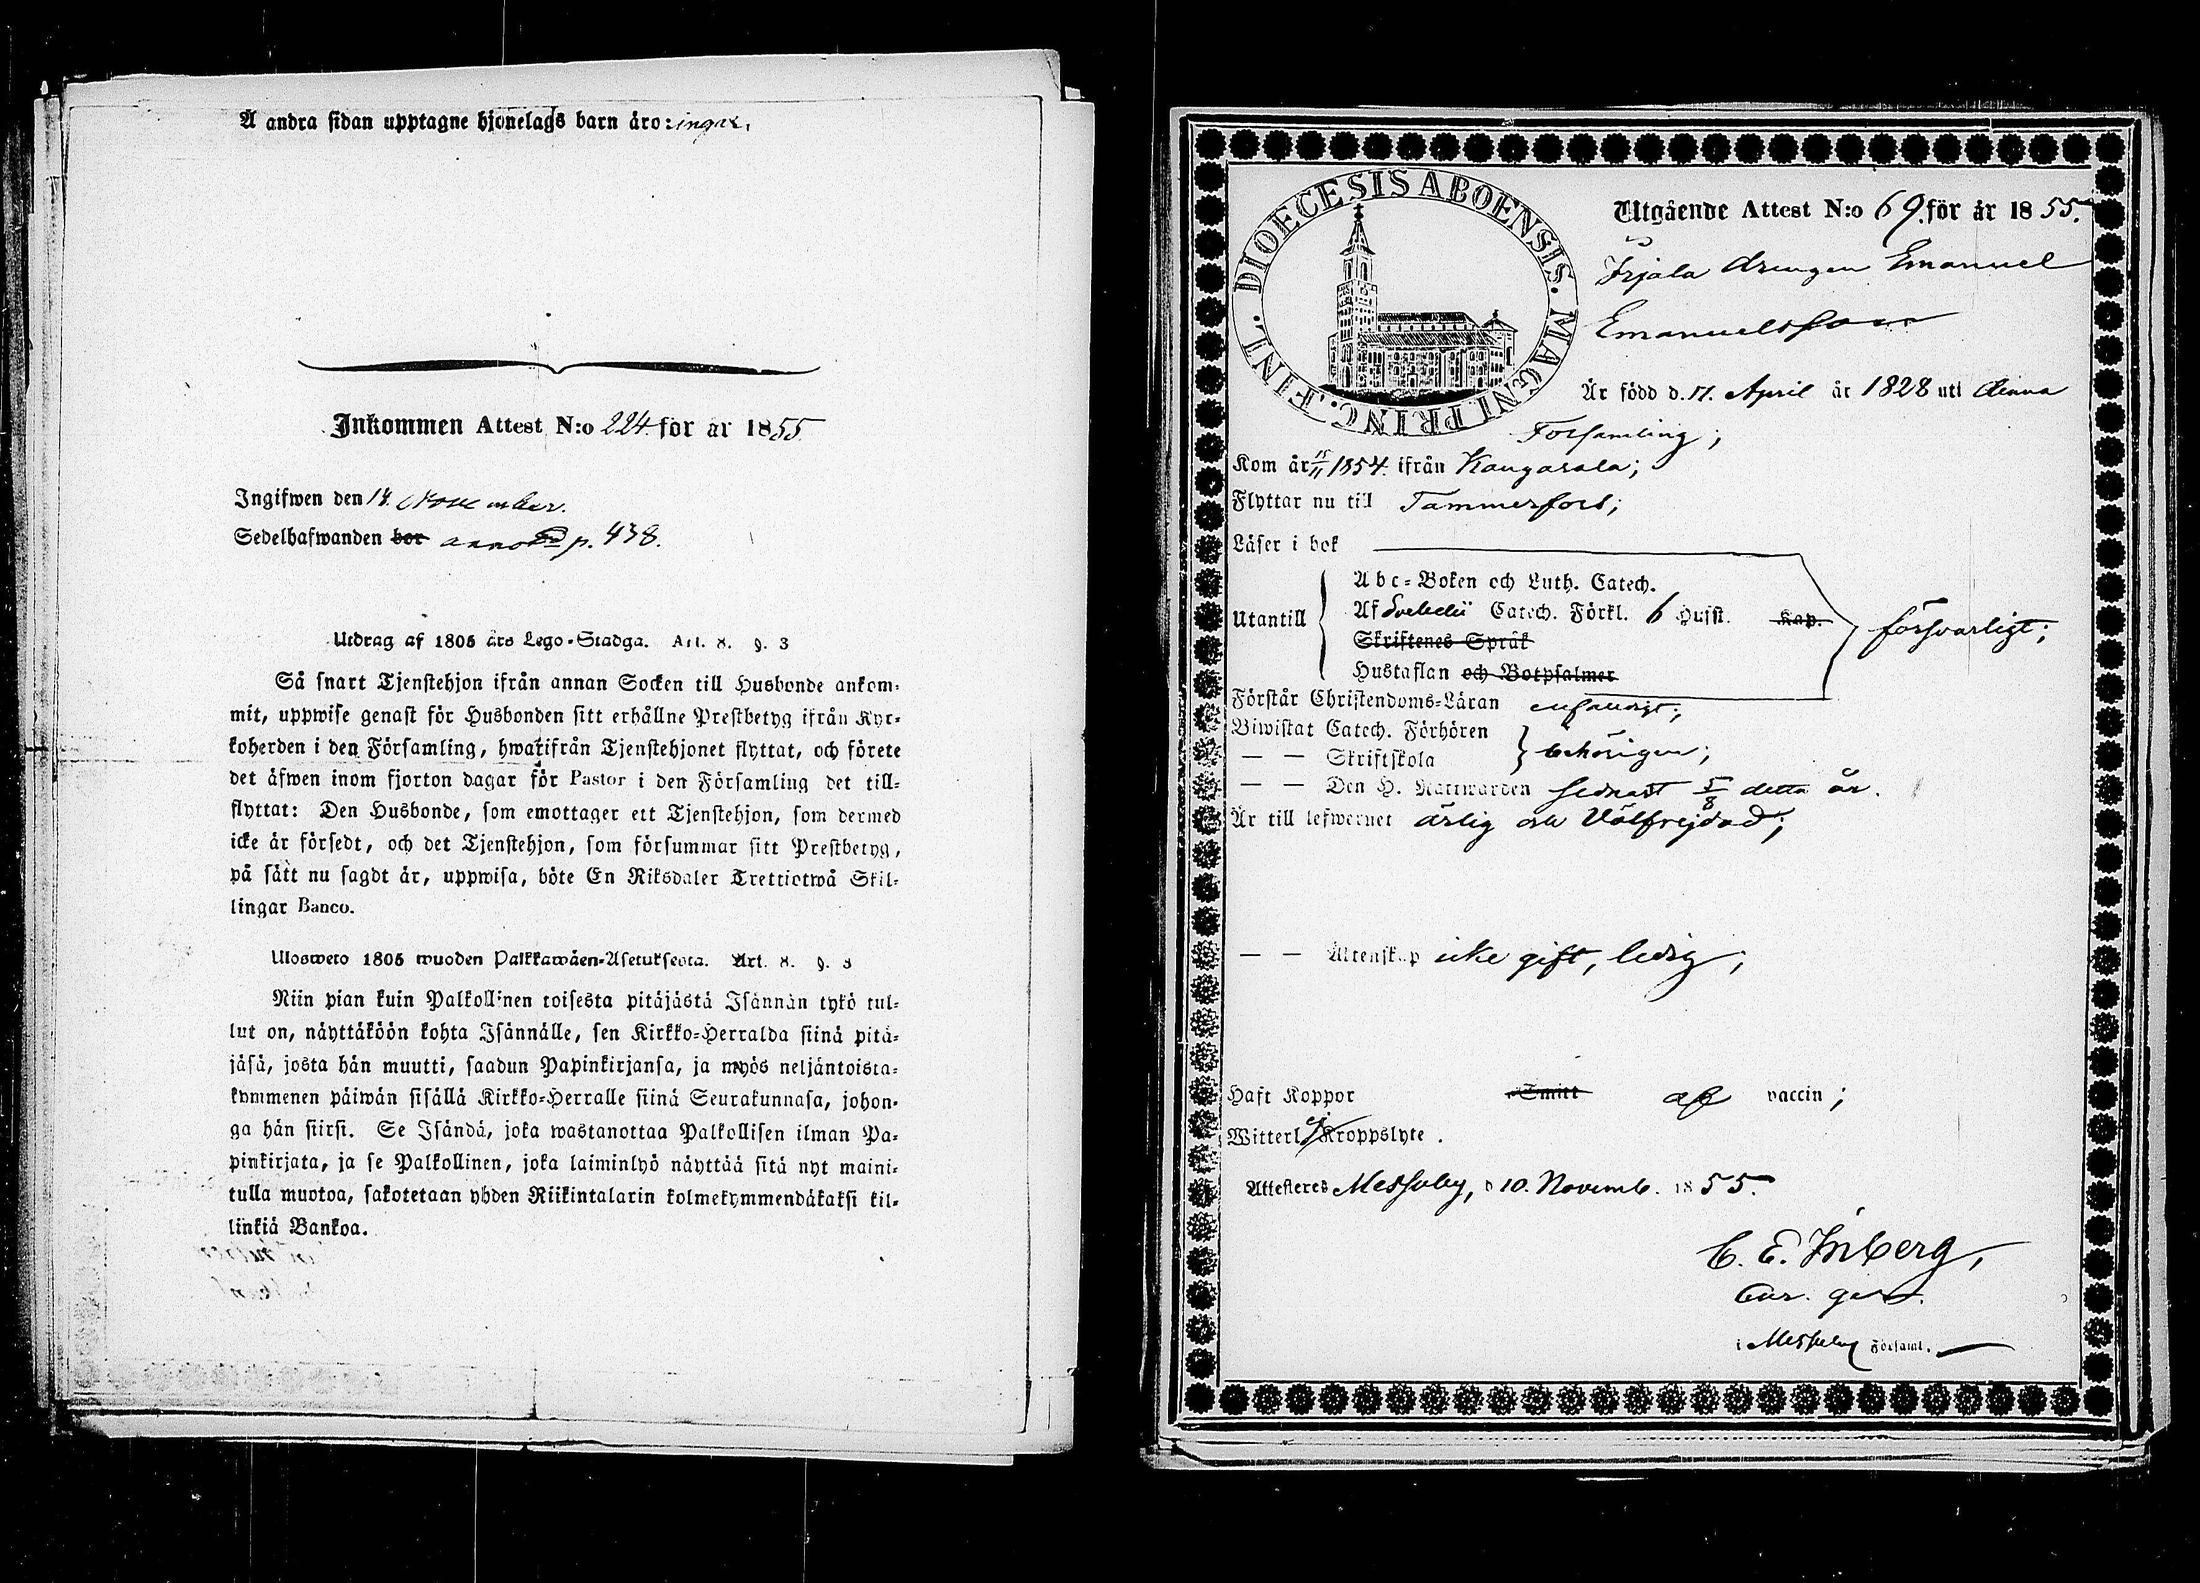 Å andra sidan upptagne hjonelags barn äro: inga.
Inkommen Attest N:o 224. för år 1855
Ingifwen den 14. November.
Sedelhafwanden bor p. 438.
Utdrag af 1805 års Lego-Stadga. Art. 8. §. 3
Så snart Tjenstehjon ifrån annan Socken till Husbonde ankom-
mit, uppwise genast för Husbonden sitt erhållne Prestbetyg ifrån Kyr-
koherden i den Församling, hwarifrån Tjenstehjonet flyttat, och förete
det äfwen inom fjorton dagar för Pastor i den Församling det till-
flyttat: Den Husbonde, som emottager ett Tjenstehjon, som dermed
icke är försedt, och det Tjenstehjon, som försummar sitt Prestbetyg,
på sätt nu sagdt är, uppwisa, böte En Riksdaler Trettiotwå Skil-
lingar Banco.
Ulosweto 1805 wuoden Palkkawäen-Asetuksesta. Art. 8. §. 3
Niin pian kuin Palkollinen toisesta pitäjästä Isännän tykö tul-
lut on, näyttäköön kohta Isännälle, sen Kirkko-Herralda siinä pitä-
jäsä, josta hän muutti, saadun Papinkirjansa, ja myös neljäntoista-
kymmenen päiwän sisällä Kirkko-Herralle siinä Seurakunnasa, johon-
ga hän siirsi. Se Isändä, joka wastanottaa Palkollisen ilman Pa-
pinkirjata, ja se Palkollinen, joka laiminlyö näyttää sitä nyt maini-
tulla muotoa, sakotetaan yhden Riikintalarin kolmekymmendäkaksi kil-
linkiä Bankoa.
DIOECESIS ABOENSIS. MAGNI PRINC. FINL.
Utgående Attest N:o 69. för år 1855.
Irjala drengen Emanuel
Emanuelsson
Är född d. 17. April år 1828 uti denna
Församling;
Kom år 15/11 1854. ifrån Kangasala;
Flyttar nu till Tammerfors;
Läser i bok
Utantill
Abc-Boken och Luth. Catech.
Af Svebelii Catech. Förkl. 6 Hufst. Kap.
försvarligt;
Skriftenes Språk
Hustaflan och Botpsalmer
Förstår Christendoms-Läran enfaldigt;
Biwistat Catech. Förhören
— — Skriftskola
behörigen;
— — Den H. Nattwarden sednast 5/8 detta år.
Är till lefwernet ärlig och välfrejdad;
— — Äktenskap icke gift, ledig;
Haft Koppor Smitt af vaccin;
Witterl. ej Kroppslyte.
Attesteres Messuby, d 10. Novemb. 1855.
C. E. Inberg,
Cur. ger.
i Messuby Församl.